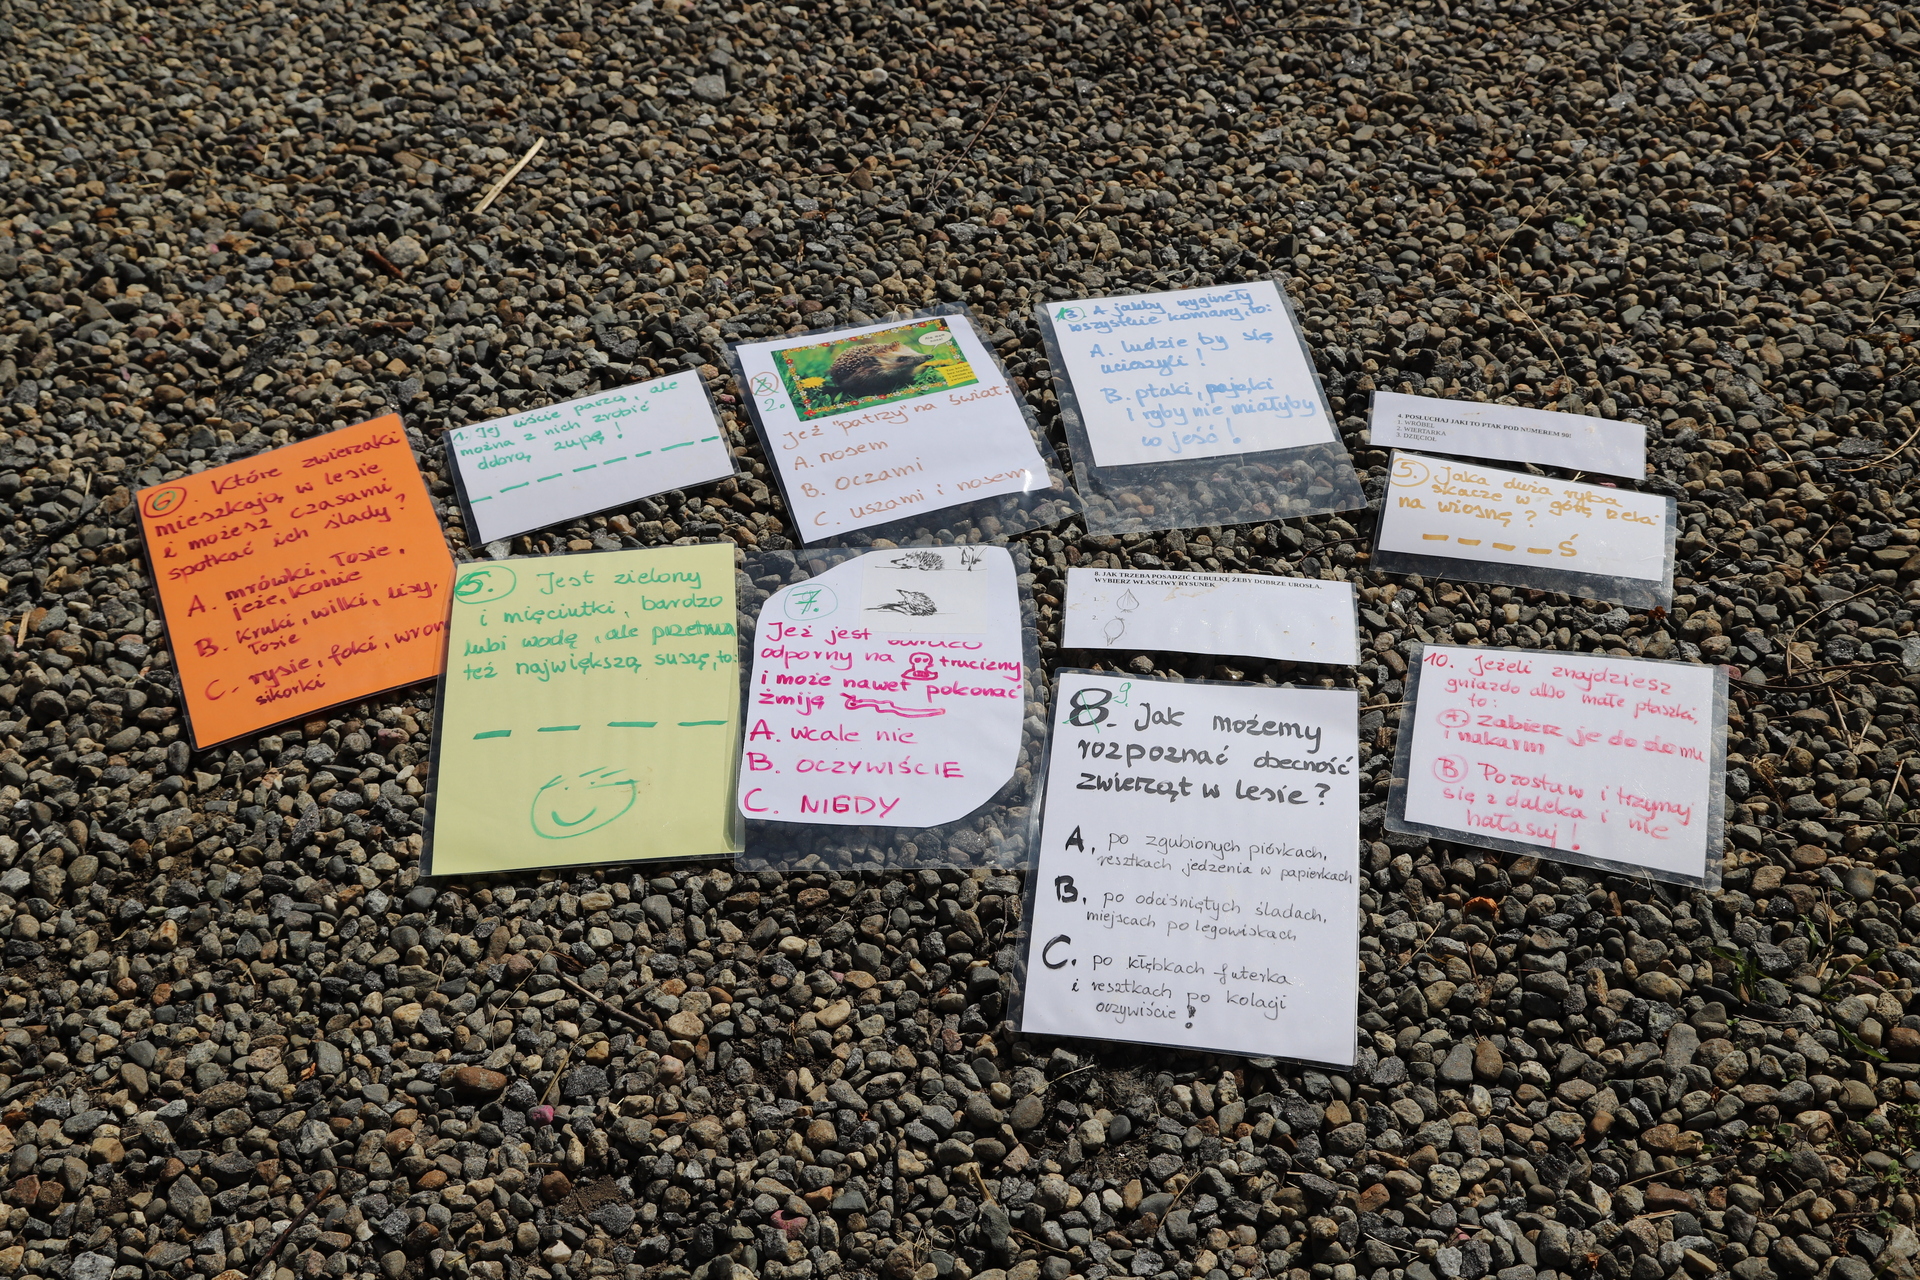 6. Które zwierzaki
mieszkają w lesie
i możesz czasami
spotkać ich ślady?
A. mrówki, łosie,
jeże, konie
B. Kruki, wilki, lisy,
łosie
C. rysie, foki, wron
sikorki
1. Jej liście parzą, ale
można z nich zrobić
dobrą zupę!
2.
Jeż "patrzy" na świat:
A. nosem
B. oczami
C. uszami i nosem
A jakby wyginęły
wszystkie komary, to:
A. ludzie by się
ucieszyli!
B. ptaki, pająki
i ryby nie miałyby
co jeść!
4. POSŁUCHAJ JAKI TO PTAK POD NUMEREM 90!
1. WRÓBEL
2. WIERTARKA
3. DZIĘCIOŁ
5. Jaka duża ryba
skacze w górę rzeki
na wiosnę?
_ _ _ _ Ś
5. Jest zielony
i mięciutki, bardzo
lubi wodę, ale przetrwa
też największą suszę, to:
_ _ _ _
7.
Jeż jest
odporny na trucizny
i może nawet pokonać
żmiję
A. wcale nie
B. OCZYWIŚCIE
C. NIGDY
8. JAK TRZEBA POSADZIĆ CEBULKĘ ŻEBY DOBRZE UROSŁA,
WYBIERZ WŁAŚCIWY RYSUNEK
1.
2.
8. 9. Jak możemy
rozpoznać obecność
zwierząt w lesie?
A. po zgubionych piórkach,
resztkach jedzenia w papierkach
B. po odciśniętych śladach,
miejscach po legowiskach
C. po kłębkach futerka
i resztkach po kolacji
oczywiście!
10. Jeżeli znajdziesz
gniazdo albo małe ptaszki,
to:
A zabierz je do domu
i nakarm
B Pozostaw i trzymaj
się z daleka i nie
hałasuj!